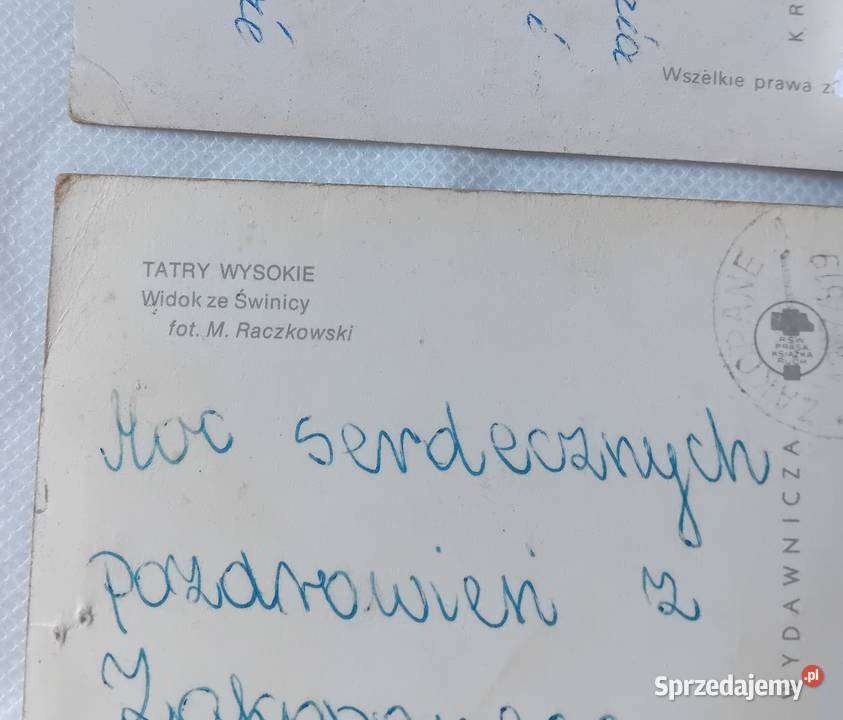 Wszelkie prawa
TATRY WYSOKIE
Widok ze Świnicy
fot. M. Raczkowski
ZAKOPANE
RSW
PRASA
KSIĄŻKA
RUCH
Moc serdecznych
pozdrowień z
Zakopanego
Sprzedajemy.pl